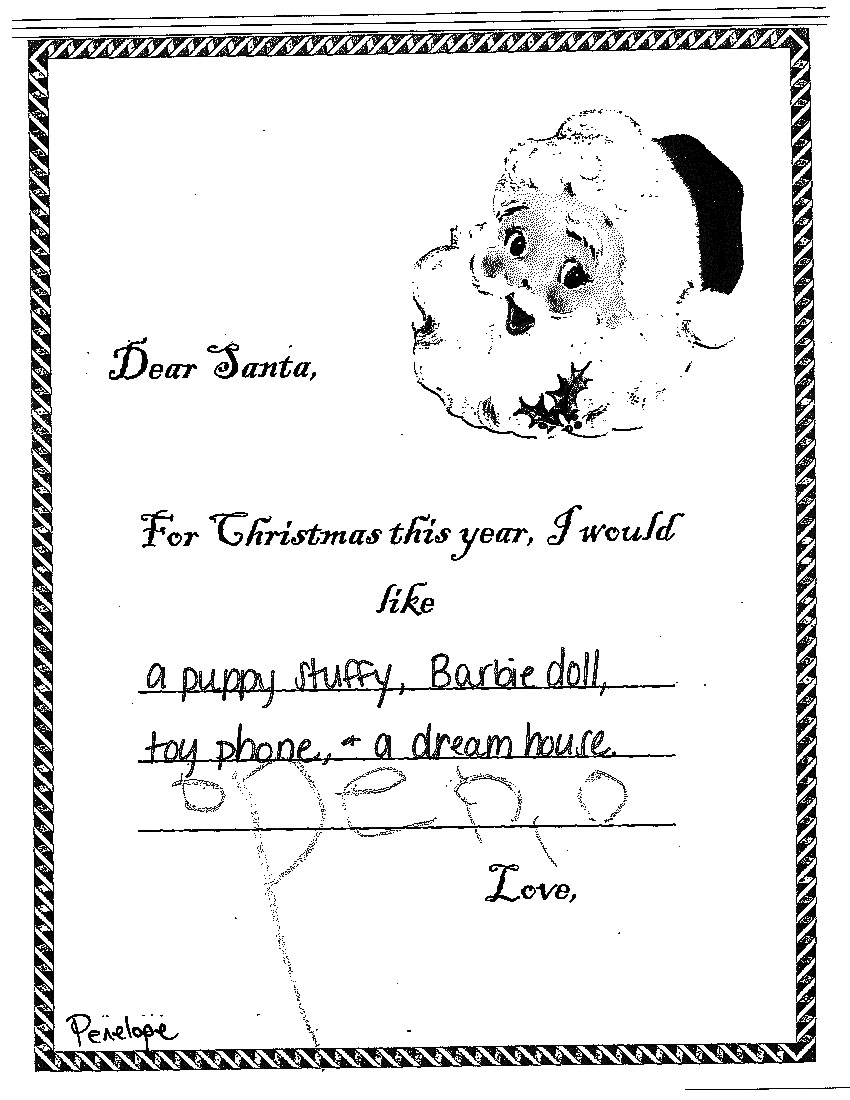 Dear Santa,
For Christmas this year, I would
like
a puppy stuffy, Barbie doll,
toy phone, + a dream house.
Love,
Penelope